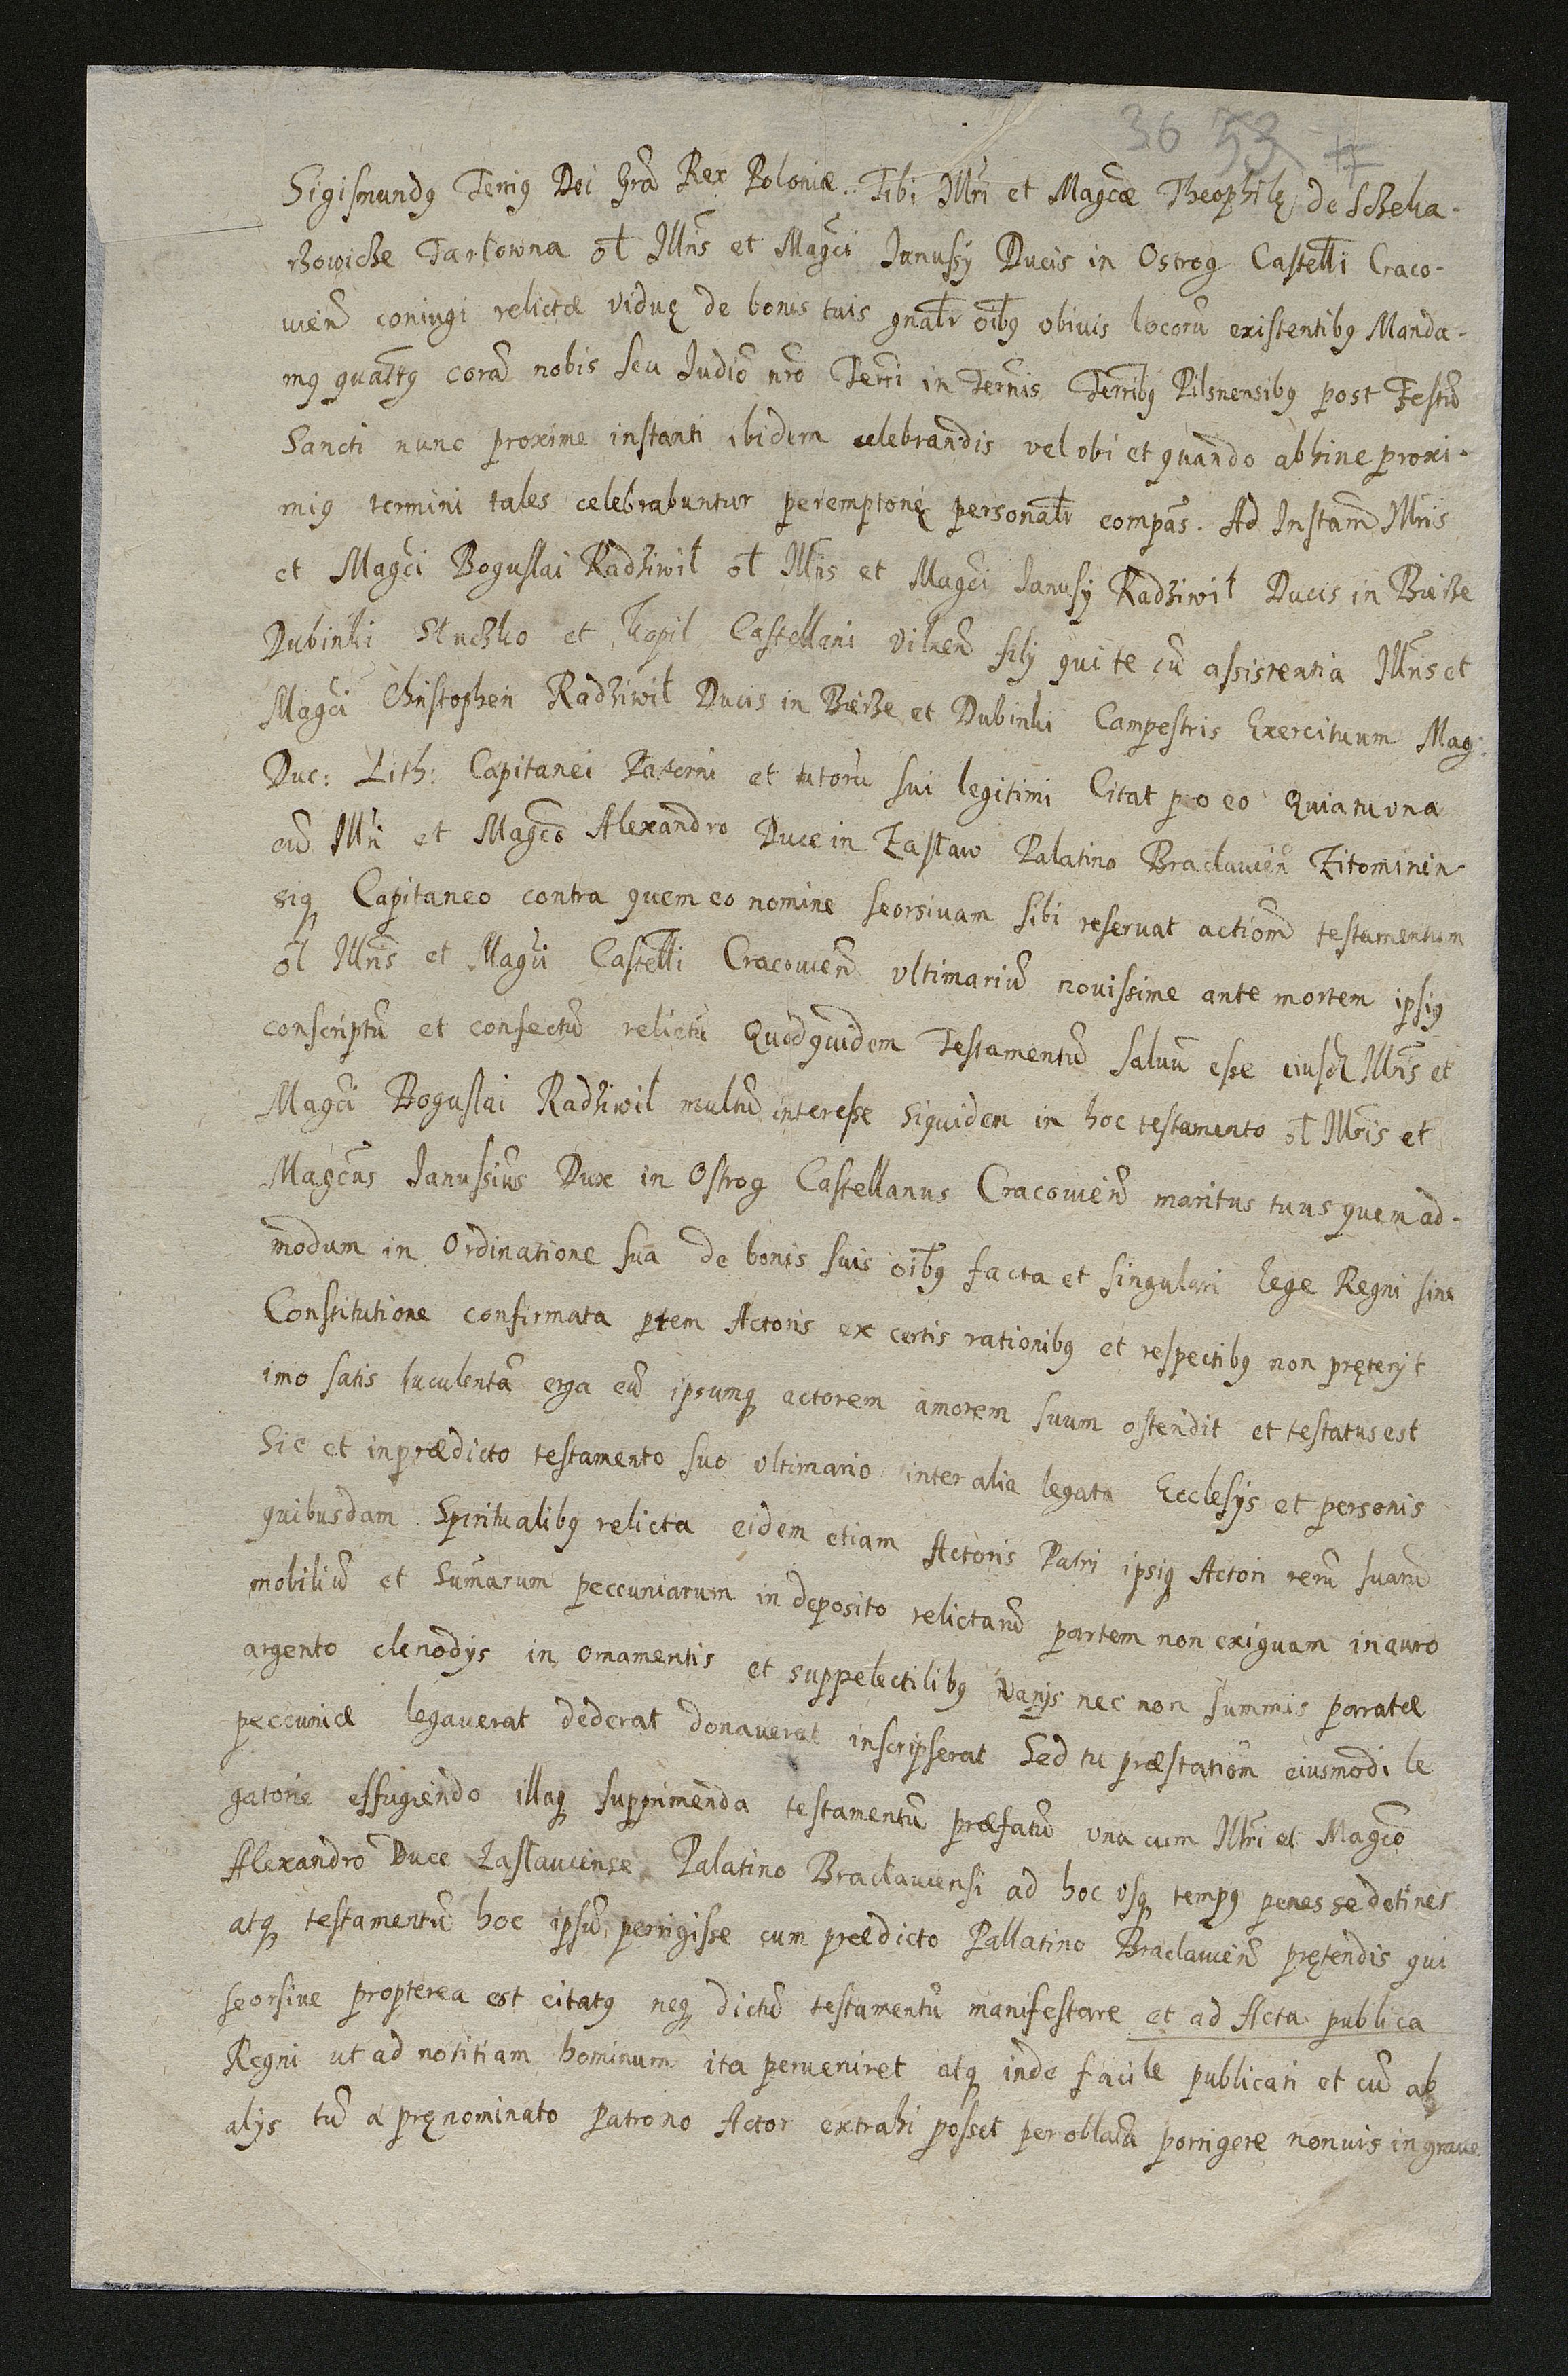 36 53 +
Sigismundꝰ Tertiꝰ Dei Gra Rex Poloniæ. Tibi Illri et Magcæ Theophilę de Scheka-
rzowicze Tarłowna oł Illris et Magci Janussy Ducis in Ostrog Castelli Craco-
uien coniugi relictæ viduę de bonis tuis gnalr oibꝰ obiuis locoru existentibꝰ Manda-
mꝰ quattꝰ cora nobis seu Judio nro Terri in Termis Terribꝰ Pilsnensibꝰ post Festu
Sancti nunc proxime instanti ibidem celebrandis vel obi et quando abhinc proxi-
miꝰ termini tales celebrabuntur peremptorię personalr compas. Ad Instam Illris
et Magci Boguslai Radziwił oł Illris et Magci Janusy Radziwił Ducis in Bierże
Dubinki Słuczko et Kopil Castellani Vilnen fily qui te cu assistentia Illris et
Magci Christopheri Radziwił Ducis in Bierże et Dubinki Campestris Exercituum Mag:
Duc: Lith: Capitanei Paterni et tutoru sui legitimi Citat pro eo Quia tu vna
cu Illri et Magco Alexandro Duce in Zasław Palatino Braclauien Zitomirien
siq Capitaneo contra quem eo nomine seorsiuam sibi reseruat actiom testamentum
oł Illris et Magci Castelli Cracouien vltimariu nouissime ante mortem ipsiꝰ
conscriptu et confectu relictu Quodquidem Testamentu saluu esse eiusd Illris et
Magci Boguslai Radziwił multu interesse siquidem in hoc testamento oł Illris et
Magcus Janussius Dux in Ostrog Castellanus Cracouien maritus tuus quem ad-
modum in Ordinatione sua de bonis suis oibꝰ facta et singulari lege Regni siue
Constitutione confirmata ptem Actoris ex certis rationibꝰ et respectibꝰ non pręteryt
imo satis luculenta erga eu ipsumq actorem amorem suum ostendit et testatus est
Sic et in prædicto testamento suo vltimario inter alia legata Ecclesys et personis
quibusdam Spiritualibꝰ relicta eidem etiam Actoris Patri ipsiq Actori reru suaru
mobiliu et Sumarum peccuniarum in deposito relictaru partem non exiguam in auro
argento clenodys in ornamentis et suppelectilibꝰ Varys nec non summis parratæ
peccuniæ legauerat dederat donauerat inscripserat Sed tu præstatiom eiusmodi le
gatorie effugiendo illaq supprimenda testamentu præfatu vna cum Illri et Magco
Alexandro Duce Zaslauiense Palatino Braclauiensi ad hoc vsq tempꝰ penes se detines
atq testamentu hoc ipsu perrigisse cum prædicto Pallatino Braclauien prętendis qui
seorsiue propterea est citatꝰ neq dictu testamentu manifestare et ad Acta publica
Regni ut ad notitiam hominum ita perueniret atq inde facile publicari et cu ab
alys tu a pręnominato Patrono Actor extrahi posset per oblata porrigere non vis in graue